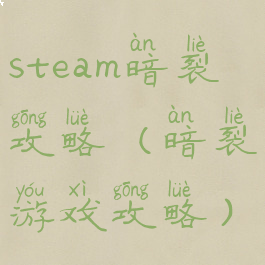 àn liè
steam暗裂
gōng lüè àn liè
攻略（暗裂
yóu xì gōng lüè
游戏攻略）